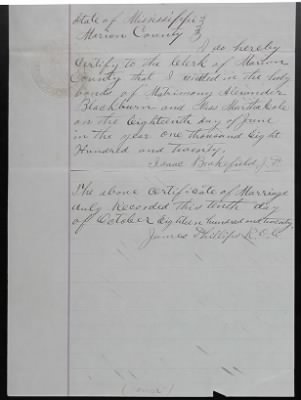 State of Mississippi }
Marion County }
I do hereby
Certify to the Clerk of Marion
County that I united in the holy
bonds of Matrimony Alexander
Blackburn and Miss Martha Cole
on the Eighteenth day of June
in the year one thousand Eight
Hundred and twenty.
Isaac Brakefield J. P.
The above Certificate of Marriage
duly Recorded this tenth day
of October Eighteen hundred and twenty.
James Phillips